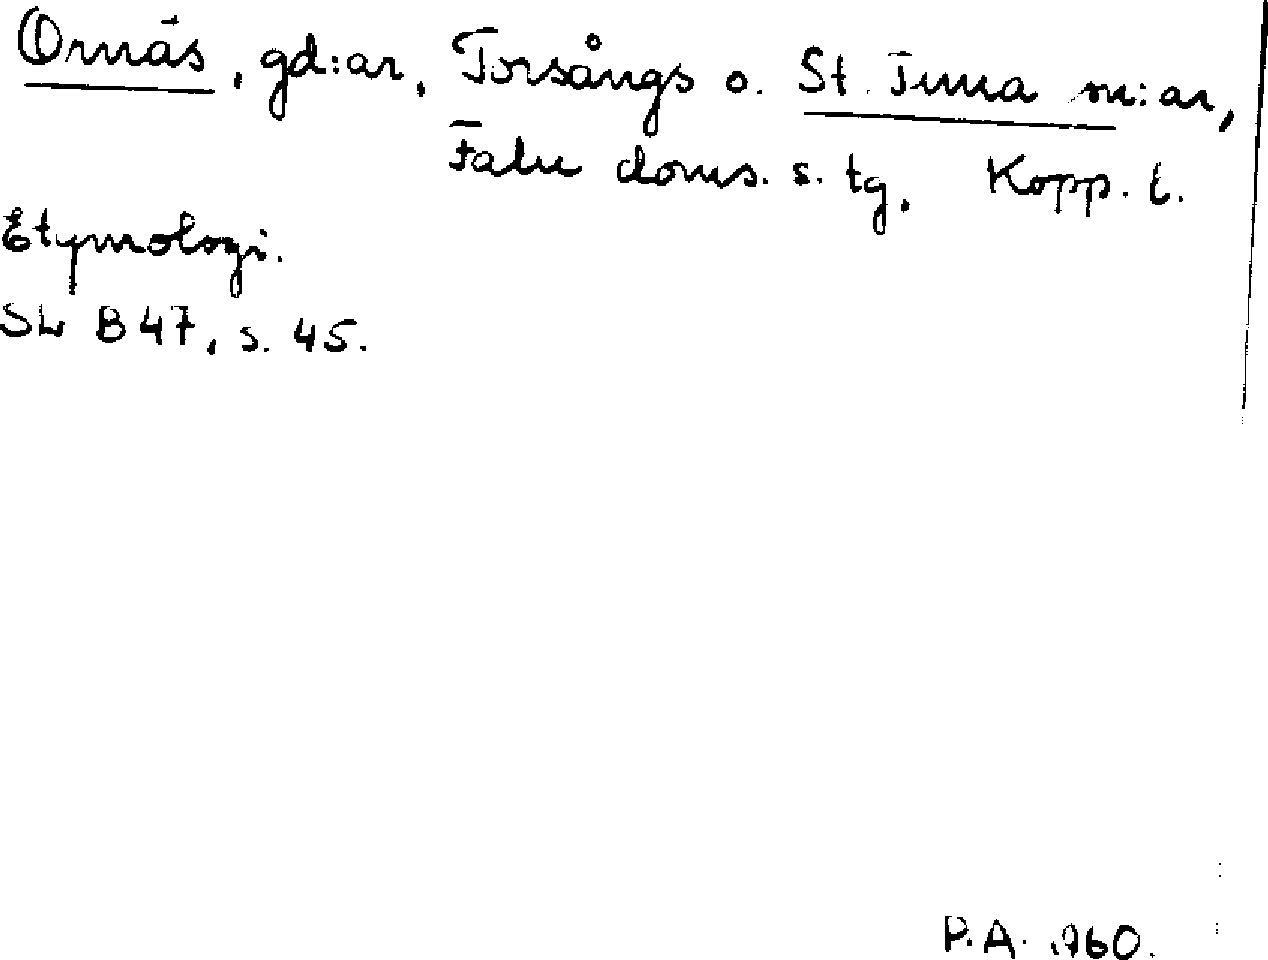 Ornäs, gd:ar, Torsångs o. St. Tuna sn:ar,
Falu doms. s. tg, Kopp. l.
Etymologi.
SLL B 47, s. 45.
P.A. 1960.